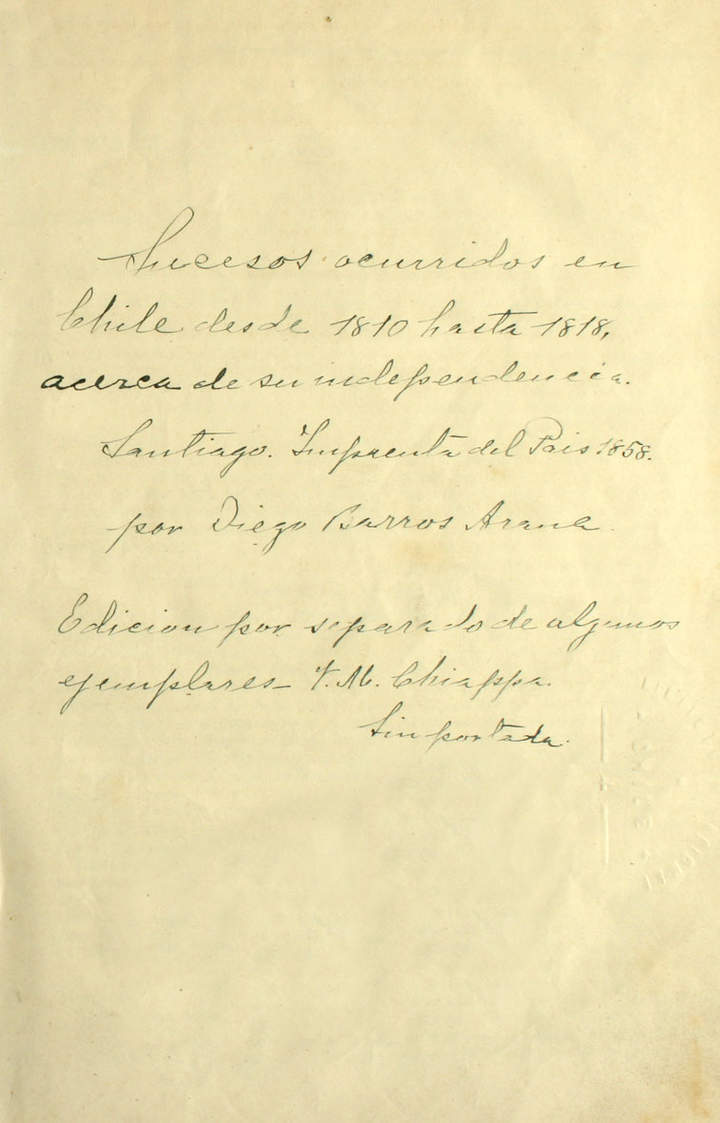 Sucesos ocurridos en
Chile desde 1810 hasta 1818,
acerca de su independencia.
Santiago. Imprenta del Pais 1858.
por Diego Barros Arana.
Edicion por separado de algunos
ejemplares – V. M. Chiappa.
Sin portada.